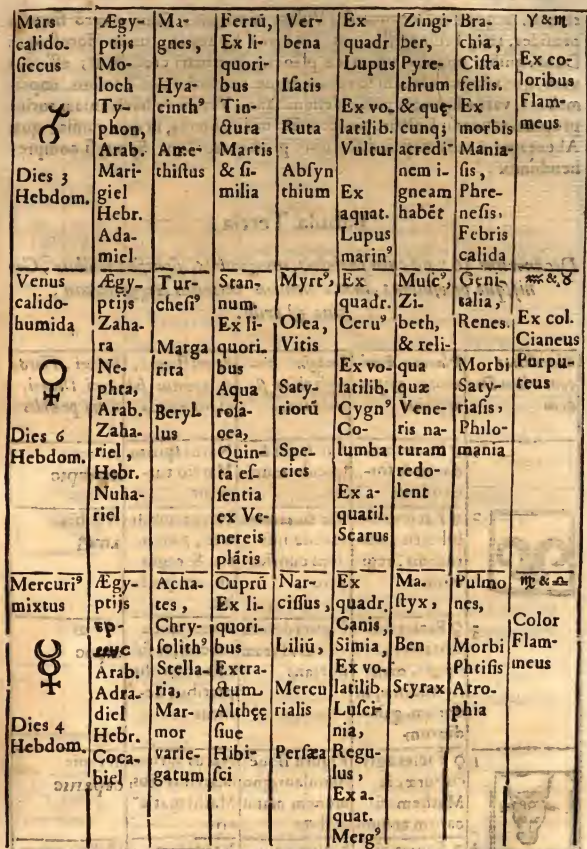 Mars
calido-
ſiccus
♂
Dies 3
Hebdom.
Ægy-
ptijs
Mo-
loch
Ty-
phon,
Arab.
Mari-
giel
Hebr.
Ada-
miel
Ma-
gnes,
Hya-
cinthꝰ
Ame-
thiſtus
Ferrũ,
Ex li-
quori-
bus
Tin-
ctura
Martis
& ſi-
milia
Ver-
bena
Iſatis
Ruta
Abſyn
thium
Ex
quadr
Lupus
Ex vo-
latilib.
Vultur
Ex
aquat.
Lupus
marinꝰ
Zingi-
ber,
Pyre-
thrum
& quę-
cunq;
acredi-
nem i-
gneam
habẽt
Bra-
chia,
Ciſta
fellis.
Ex
morbis
Mania-
ſis,
Phre-
neſis,
Febris
calida
♈ & ♏
Ex co-
loribus
Flam-
meus
Venus
calido-
humida
♀
Dies 6
Hebdom.
Ægy-
ptijs
Zaha-
ra
Ne-
phta,
Arab.
Zaha-
riel,
Hebr.
Nuha-
riel
Tur-
cheſiꝰ
Marga
rita
Beryl-
lus
Stan-
num.
Ex li-
quori-
bus
Aqua
roſa-
cea,
Quin-
ta eſ-
ſentia
ex Ve-
nereis
plãtis
Myrtꝰ,
Olea,
Vitis
Saty-
riorũ
Spe-
cies
Ex
quadr.
Ceruꝰ
Ex vo-
latilib.
Cygnꝰ
Co-
lumba
Ex a-
quatil.
Scarus
Muſcꝰ,
Zi-
beth,
& reli-
qua
quæ
Vene-
ris na-
turam
redo-
lent
Geni-
talia,
Renes
Morbi
Saty-
riaſis,
Philo-
mania
♒ & ♉
Ex col.
Cianeus
Purpu-
reus
Mercuriꝰ
mixtus
☿
Dies 4
Hebdom.
Ægy-
ptijs
Arab.
Adra-
diel
Hebr.
Coca-
biel
Acha-
tes,
Chry-
ſolithꝰ
Stella-
ria,
Mar-
mor
varie-
gatum
Cuprũ
Ex li-
quori-
bus
Extra-
ctum
Althęę
ſiue
Hibi-
ſci
Nar-
ciſſus,
Liliũ,
Mercu
rialis
Perſæa
Ex
quadr.
Canis,
Simia,
Ex vo-
latilib.
Luſci-
nia,
Regu-
lus,
Ex a-
quat.
Mergꝰ
Ma-
ſtyx,
Ben
Styrax
Pulmo
nes,
Morbi
Phtiſis
Atro-
phia
♍ & ♎
Color
Flam-
meus